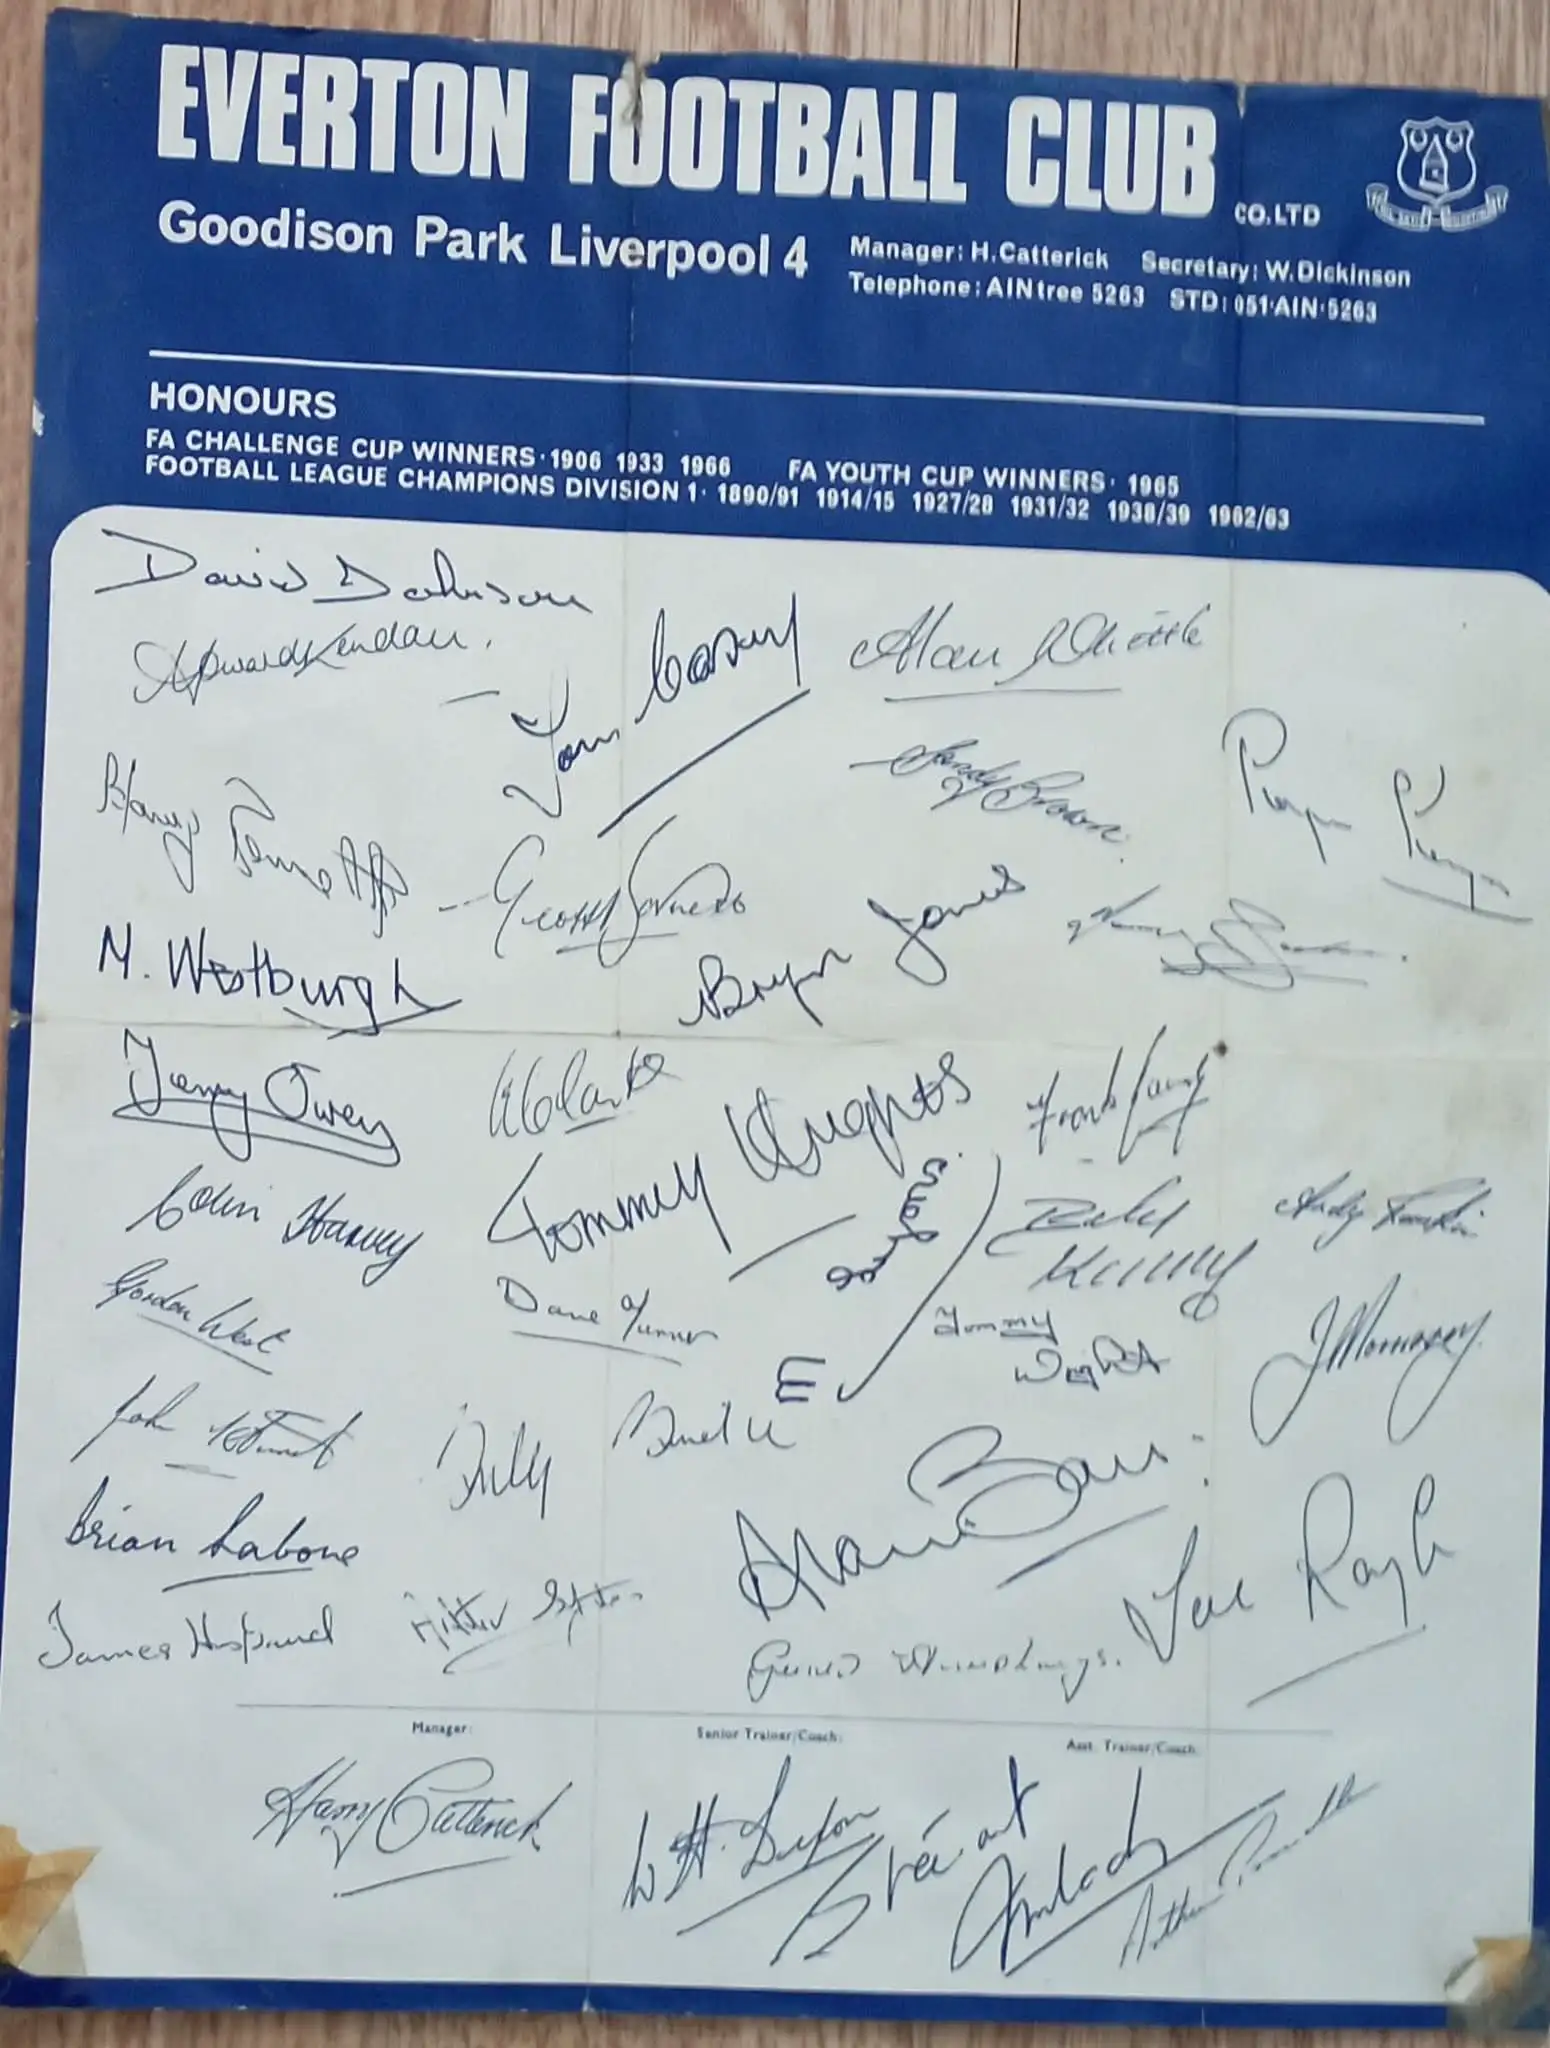 EVERTON FOOTBALL CLUB CO.LTD
Goodison Park Liverpool 4
Manager: H.Catterick Secretary: W.Dickinson
Telephone: AINtree 5263 STD: 051·AIN·5263
HONOURS
FA CHALLENGE CUP WINNERS·1906 1933 1966 FA YOUTH CUP WINNERS· 1965
FOOTBALL LEAGUE CHAMPIONS DIVISION 1· 1890/91 1914/15 1927/28 1931/32 1938/39 1962/63
David Johnson
Howard Kendall
Alan Whittle
Sandy Brown
Geoff Barnett
M. Westburgh
Terry Owen
Colin Harvey
Tommy Hughes
Frank
Roger Kenyon
Andy Rankin
Gordon West
Dave Turner
Tommy
Wright
J Morrissey
John
Billy
Brian Labone
Alan Ball
James Husband
Gerard Humphreys.
Joe Royle
Manager:
Senior Trainer/Coach:
Asst. Trainer/Coach
Harry Catterick
W H. Dixon
Stewart Imlach
Arthur